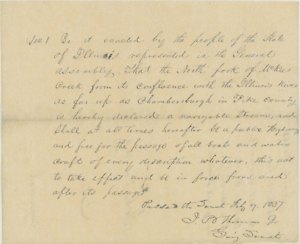 Sec 1 Be it enacted by the people of the State
of Illinois represented in the General
Assembly, That the North fork of McKees
Creek from its confluence with the Illinois River
as far up as Chambersburgh in Pike County
is hereby declared a navigable Stream, and
shall at all times hereafter be a public highway
and free for the passage of all boats and water
craft of every description whatever. This act
to take effect and be in force from and
after its passage
Passed the Senate Feby 9, 1837
J B Thomas Jr
Senate